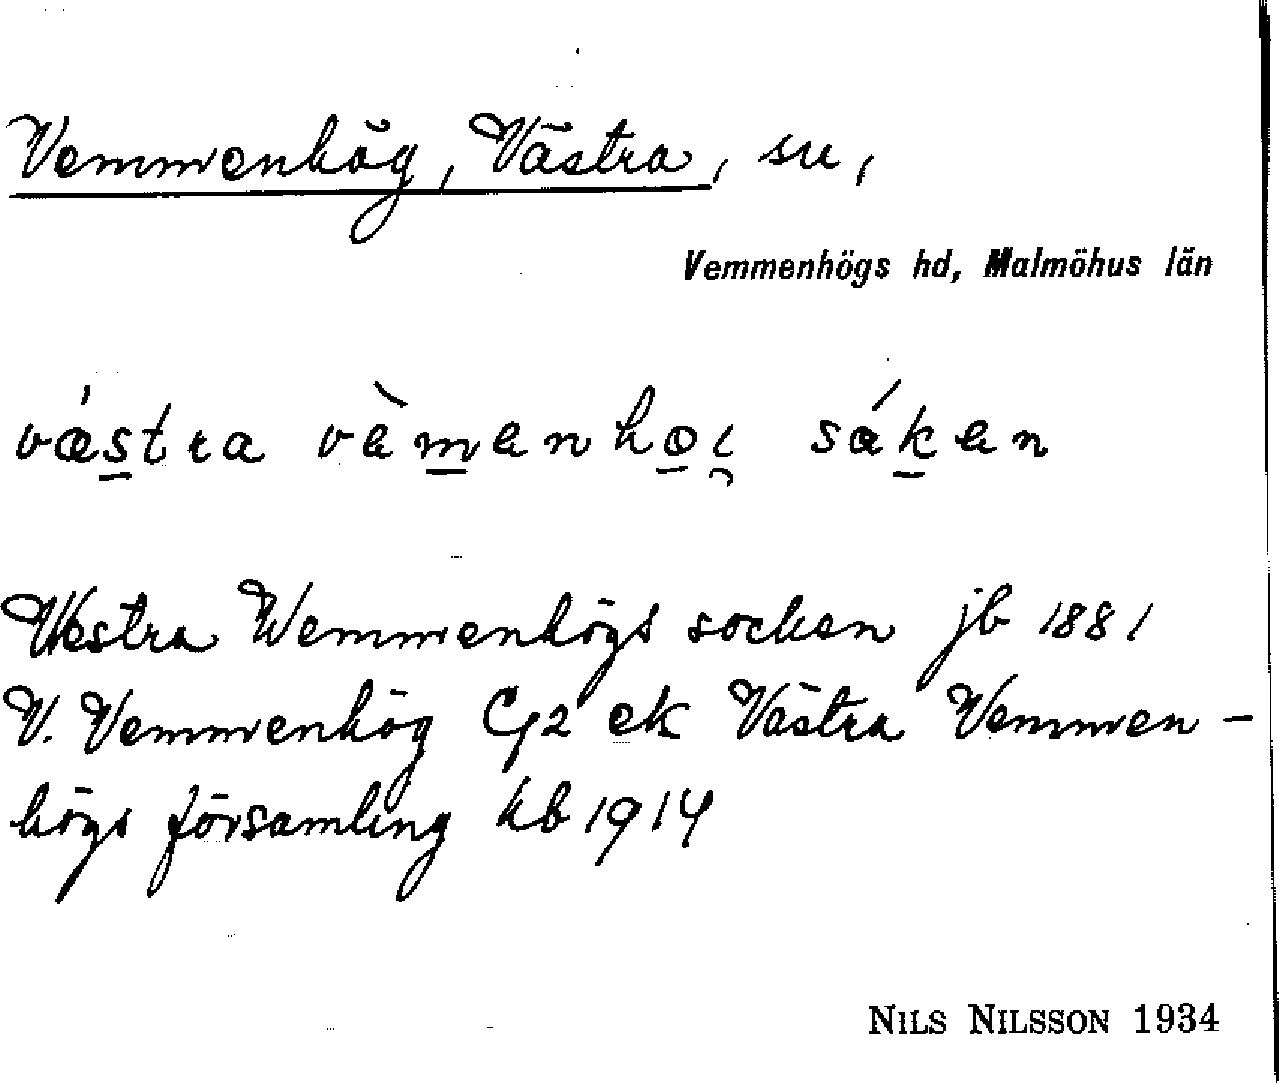 Vemmenhög, Västra, sn,
Vemmenhögs hd, Malmöhus län
vǽstra vèmenhøi̯ sákен
Westra Wemmenhögs socken jb 1881
V. Vemmenhög Cg2 ek Västra Vemmen-
högs församling kb 1914
NILS NILSSON 1934